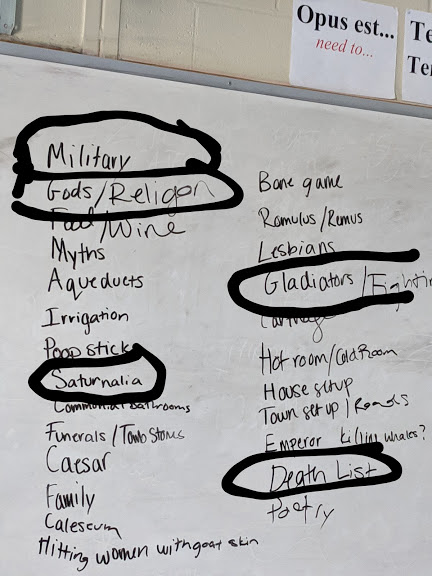 Opus est...
need to...
Te
Ter
Military
Gods/Religon
Food/Wine
Myths
Aqueducts
Irrigation
Poop stick
Saturnalia
Communal bathrooms
Funerals/Tomb Stones
Caesar
Family
Caleseum
Hitting women with goat skin
Bone game
Romulus/Remus
Lesbians
Gladiators/Fightin
Carthage
Hot room/Cold Room
House setup
Town set up/Roads
Emperor killing whales?
Death List
Poetry